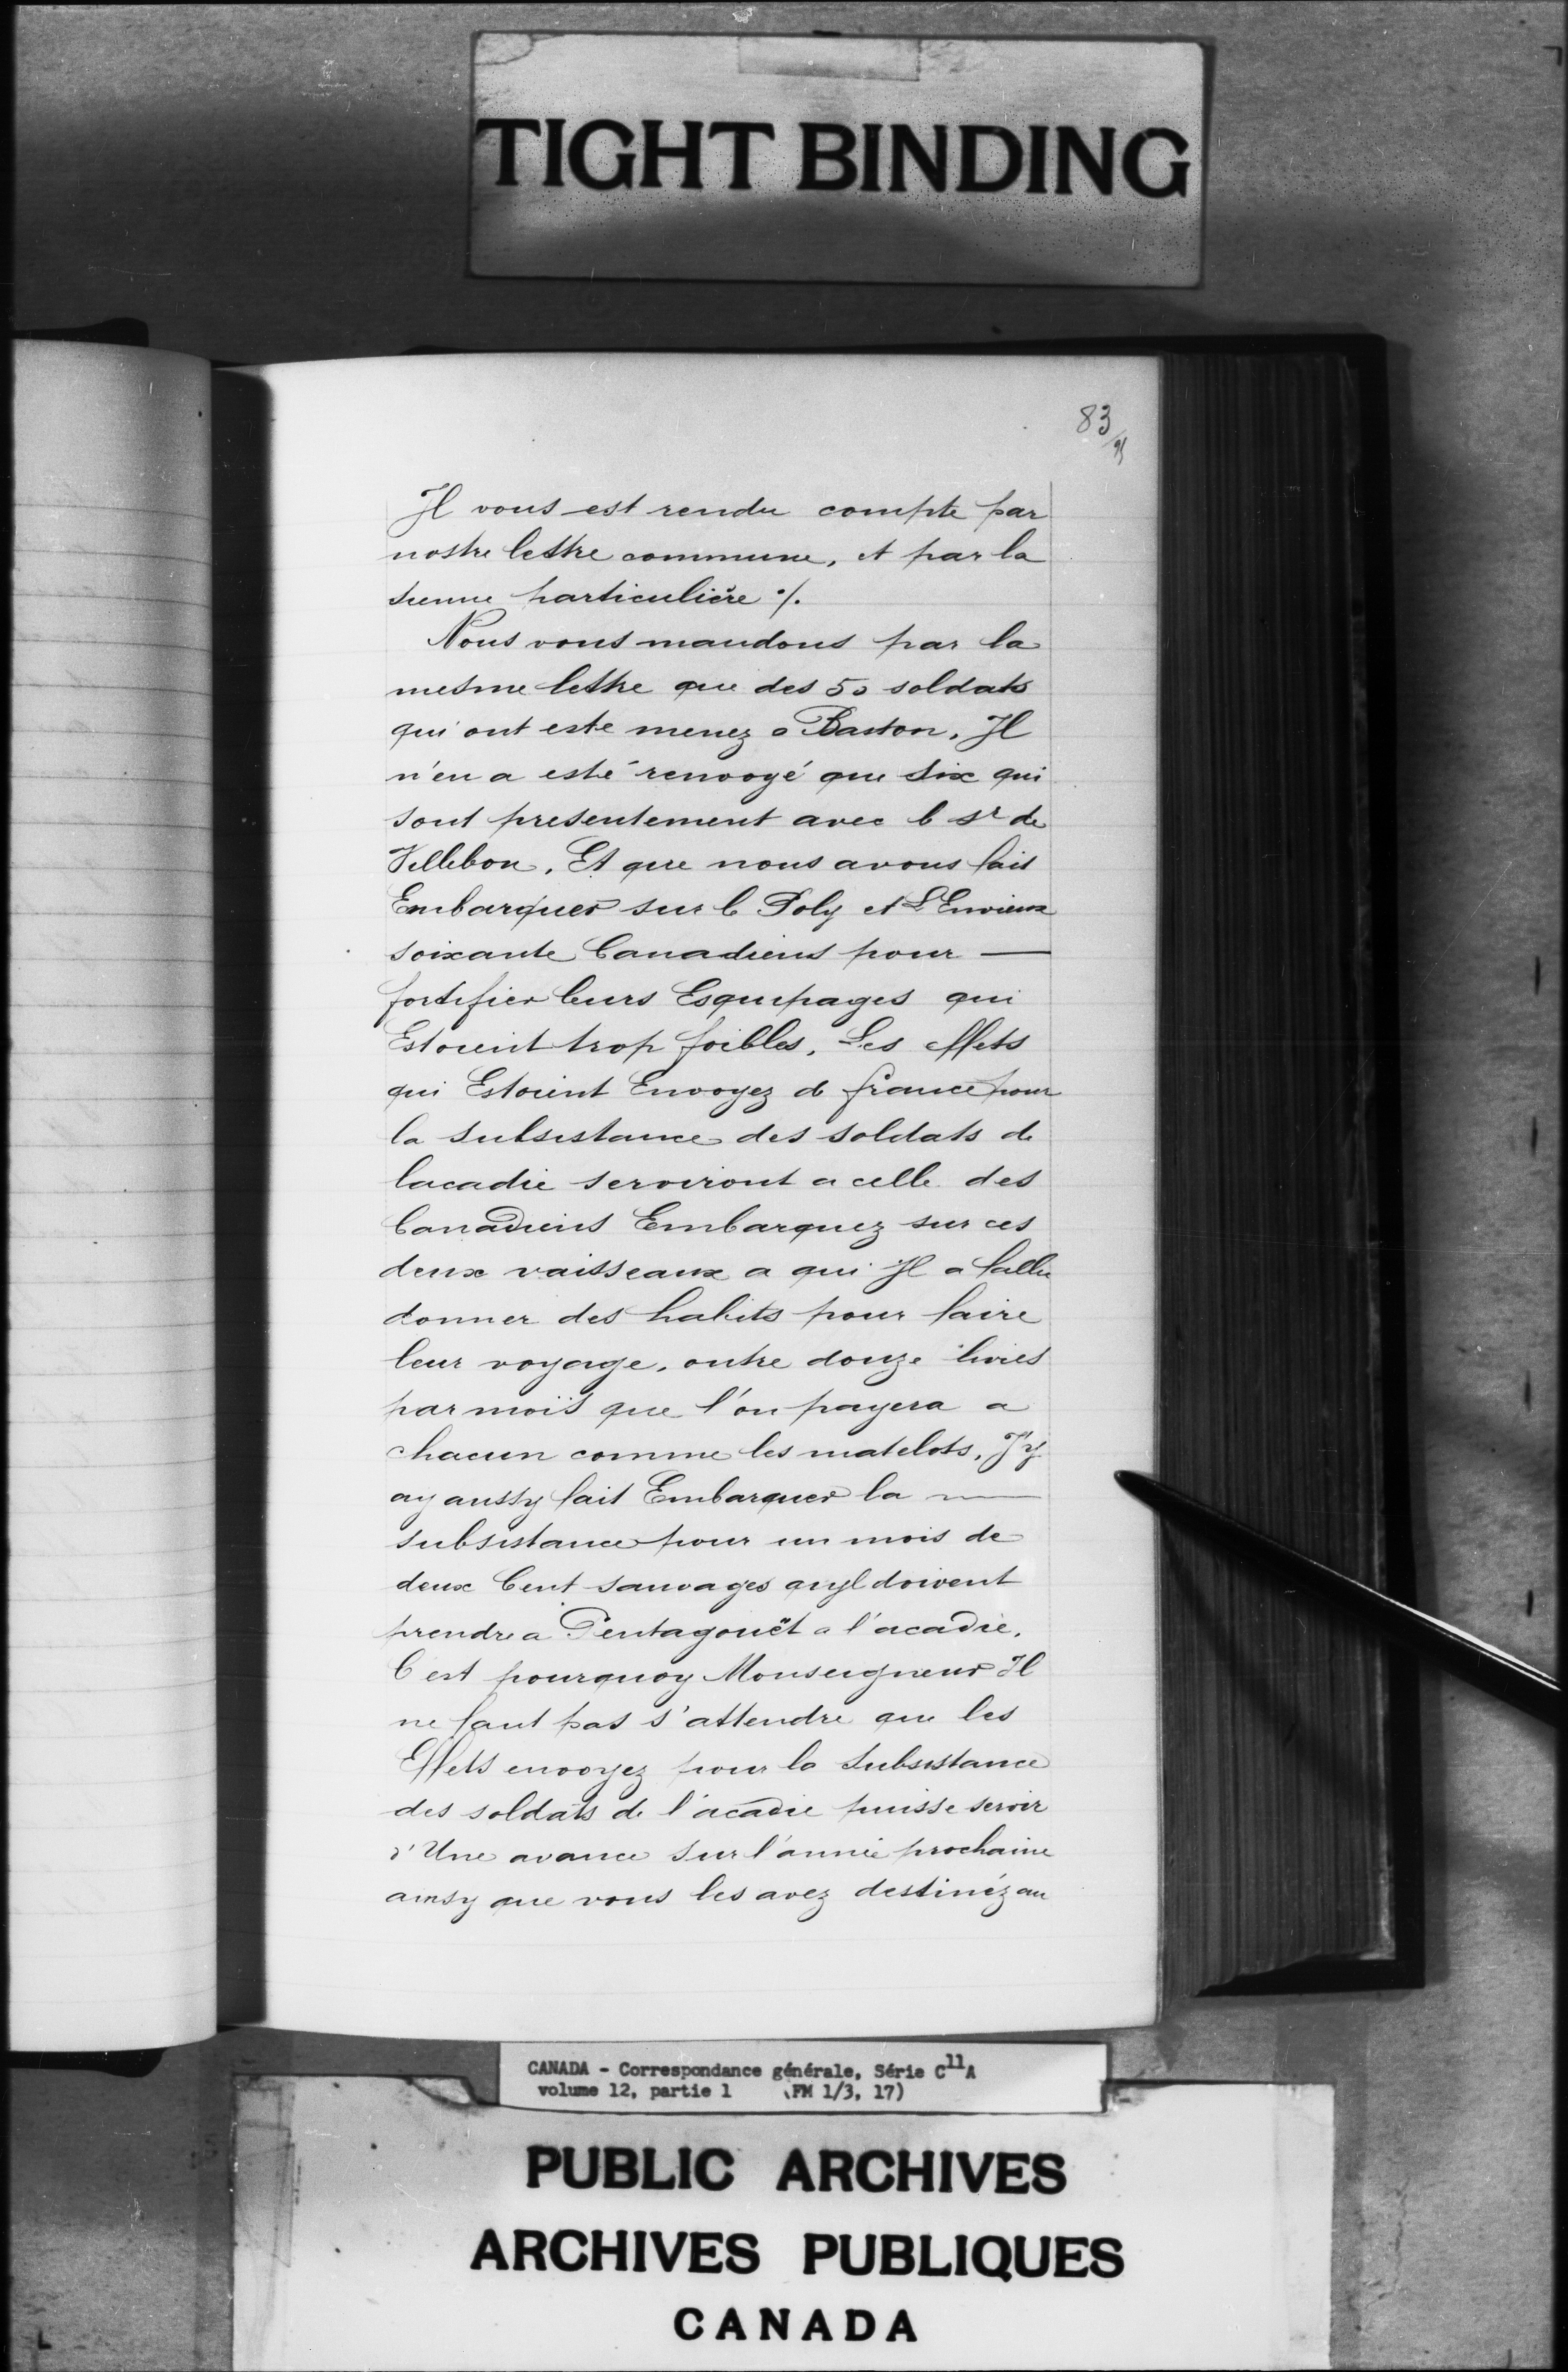 TIGHT BINDING
83
Il vous est rendu compte par
nostre lettre commune, et par la
sienne particulière ./.
Nous vous mandons par la
mesme lettre que des 50 soldats
qui ont esté menez a Baston, Il
n'en a esté renvoyé que six qui
sont presentement avec le Sr de
Villebon. Et que nous avons fait
Embarquer sur le Poly et L'Envieux
soixante Canadiens pour —
fortifier leurs Esquipages qui
Estoient trop foibles, Les effets
qui Estoient Envoyez de france pour
la subsistance des soldats de
lacadie serviront a celle des
Canadiens Embarquez sur ces
deux vaisseaux a qui Il a fallu
donner des habits pour faire
leur voyage, outre douze livres
par moïs que l'on payera a
chacun comme les matelots, J'y
ay aussy fait Embarquer la —
subsistance pour un mois de
deux Cent sauvages quyl doivent
prendre a Pentagouët a l'acadie.
C'est pourquoy Monseigneur Il
ne faut pas s'attendre que les
Effets envoyez pour la Subsistance
des soldats de l'acadie puisse servir
d'Une avance sur l'année prochaine
ainsy que vous les avez destinéz au
CANADA - Correspondance générale, Série C11A
volume 12, partie 1 (FM 1/3, 17)
PUBLIC ARCHIVES
ARCHIVES PUBLIQUES
CANADA